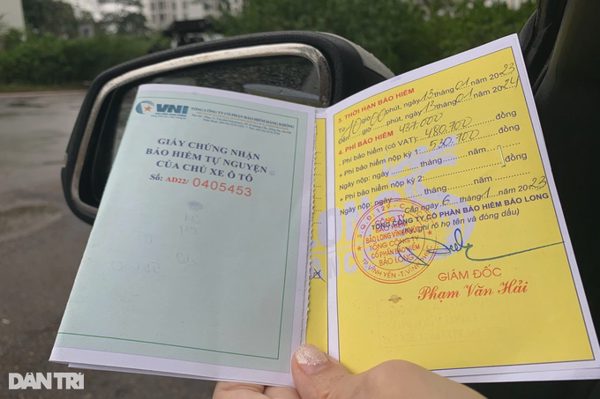 VNI
TỔNG CÔNG TY CỔ PHẦN BẢO HIỂM HÀNG KHÔNG
GIẤY CHỨNG NHẬN
BẢO HIỂM TỰ NGUYỆN
CỦA CHỦ XE Ô TÔ
Số: AD22/ 0405453
3. THỜI HẠN BẢO HIỂM
Từ 10 giờ 00 phút, ngày 13 tháng 01 năm 2023
đến giờ phút, ngày 13 tháng 01 năm 2024
4. PHÍ BẢO HIỂM 437.000
• Phí bảo hiểm (có VAT): 480.700 đồng
• Phí bảo hiểm nộp kỳ 1: 530.700 đồng
Ngày nộp: ngày tháng năm
• Phí bảo hiểm nộp kỳ 2: đồng
Ngày nộp: ngày tháng năm
Cấp ngày 6 tháng 1 năm 2023
TỔNG CÔNG TY CỔ PHẦN BẢO HIỂM BẢO LONG
ghi rõ họ tên và đóng dấu)
CÔNG TY
BẢO LONG VĨNH PHÚC
TỔNG CÔNG TY
CỔ PHẦN BẢO HIỂM
BẢO LONG
TP.VĨNH YÊN - T.VĨNH
GIÁM ĐỐC
Phạm Văn Hải
DÂN TRÍ